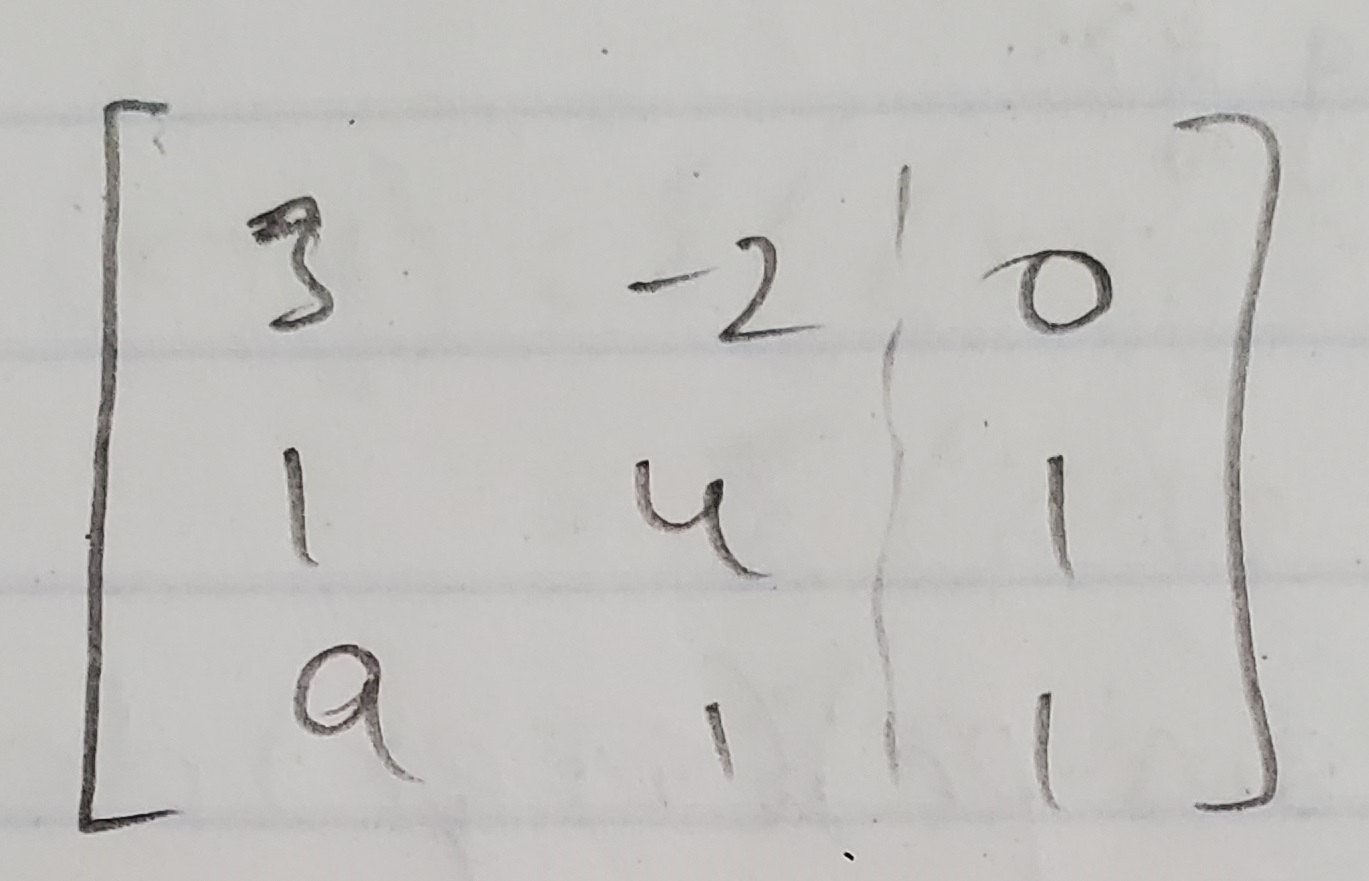 3 -2 | 0
1 4 | 1
9 1 | 1